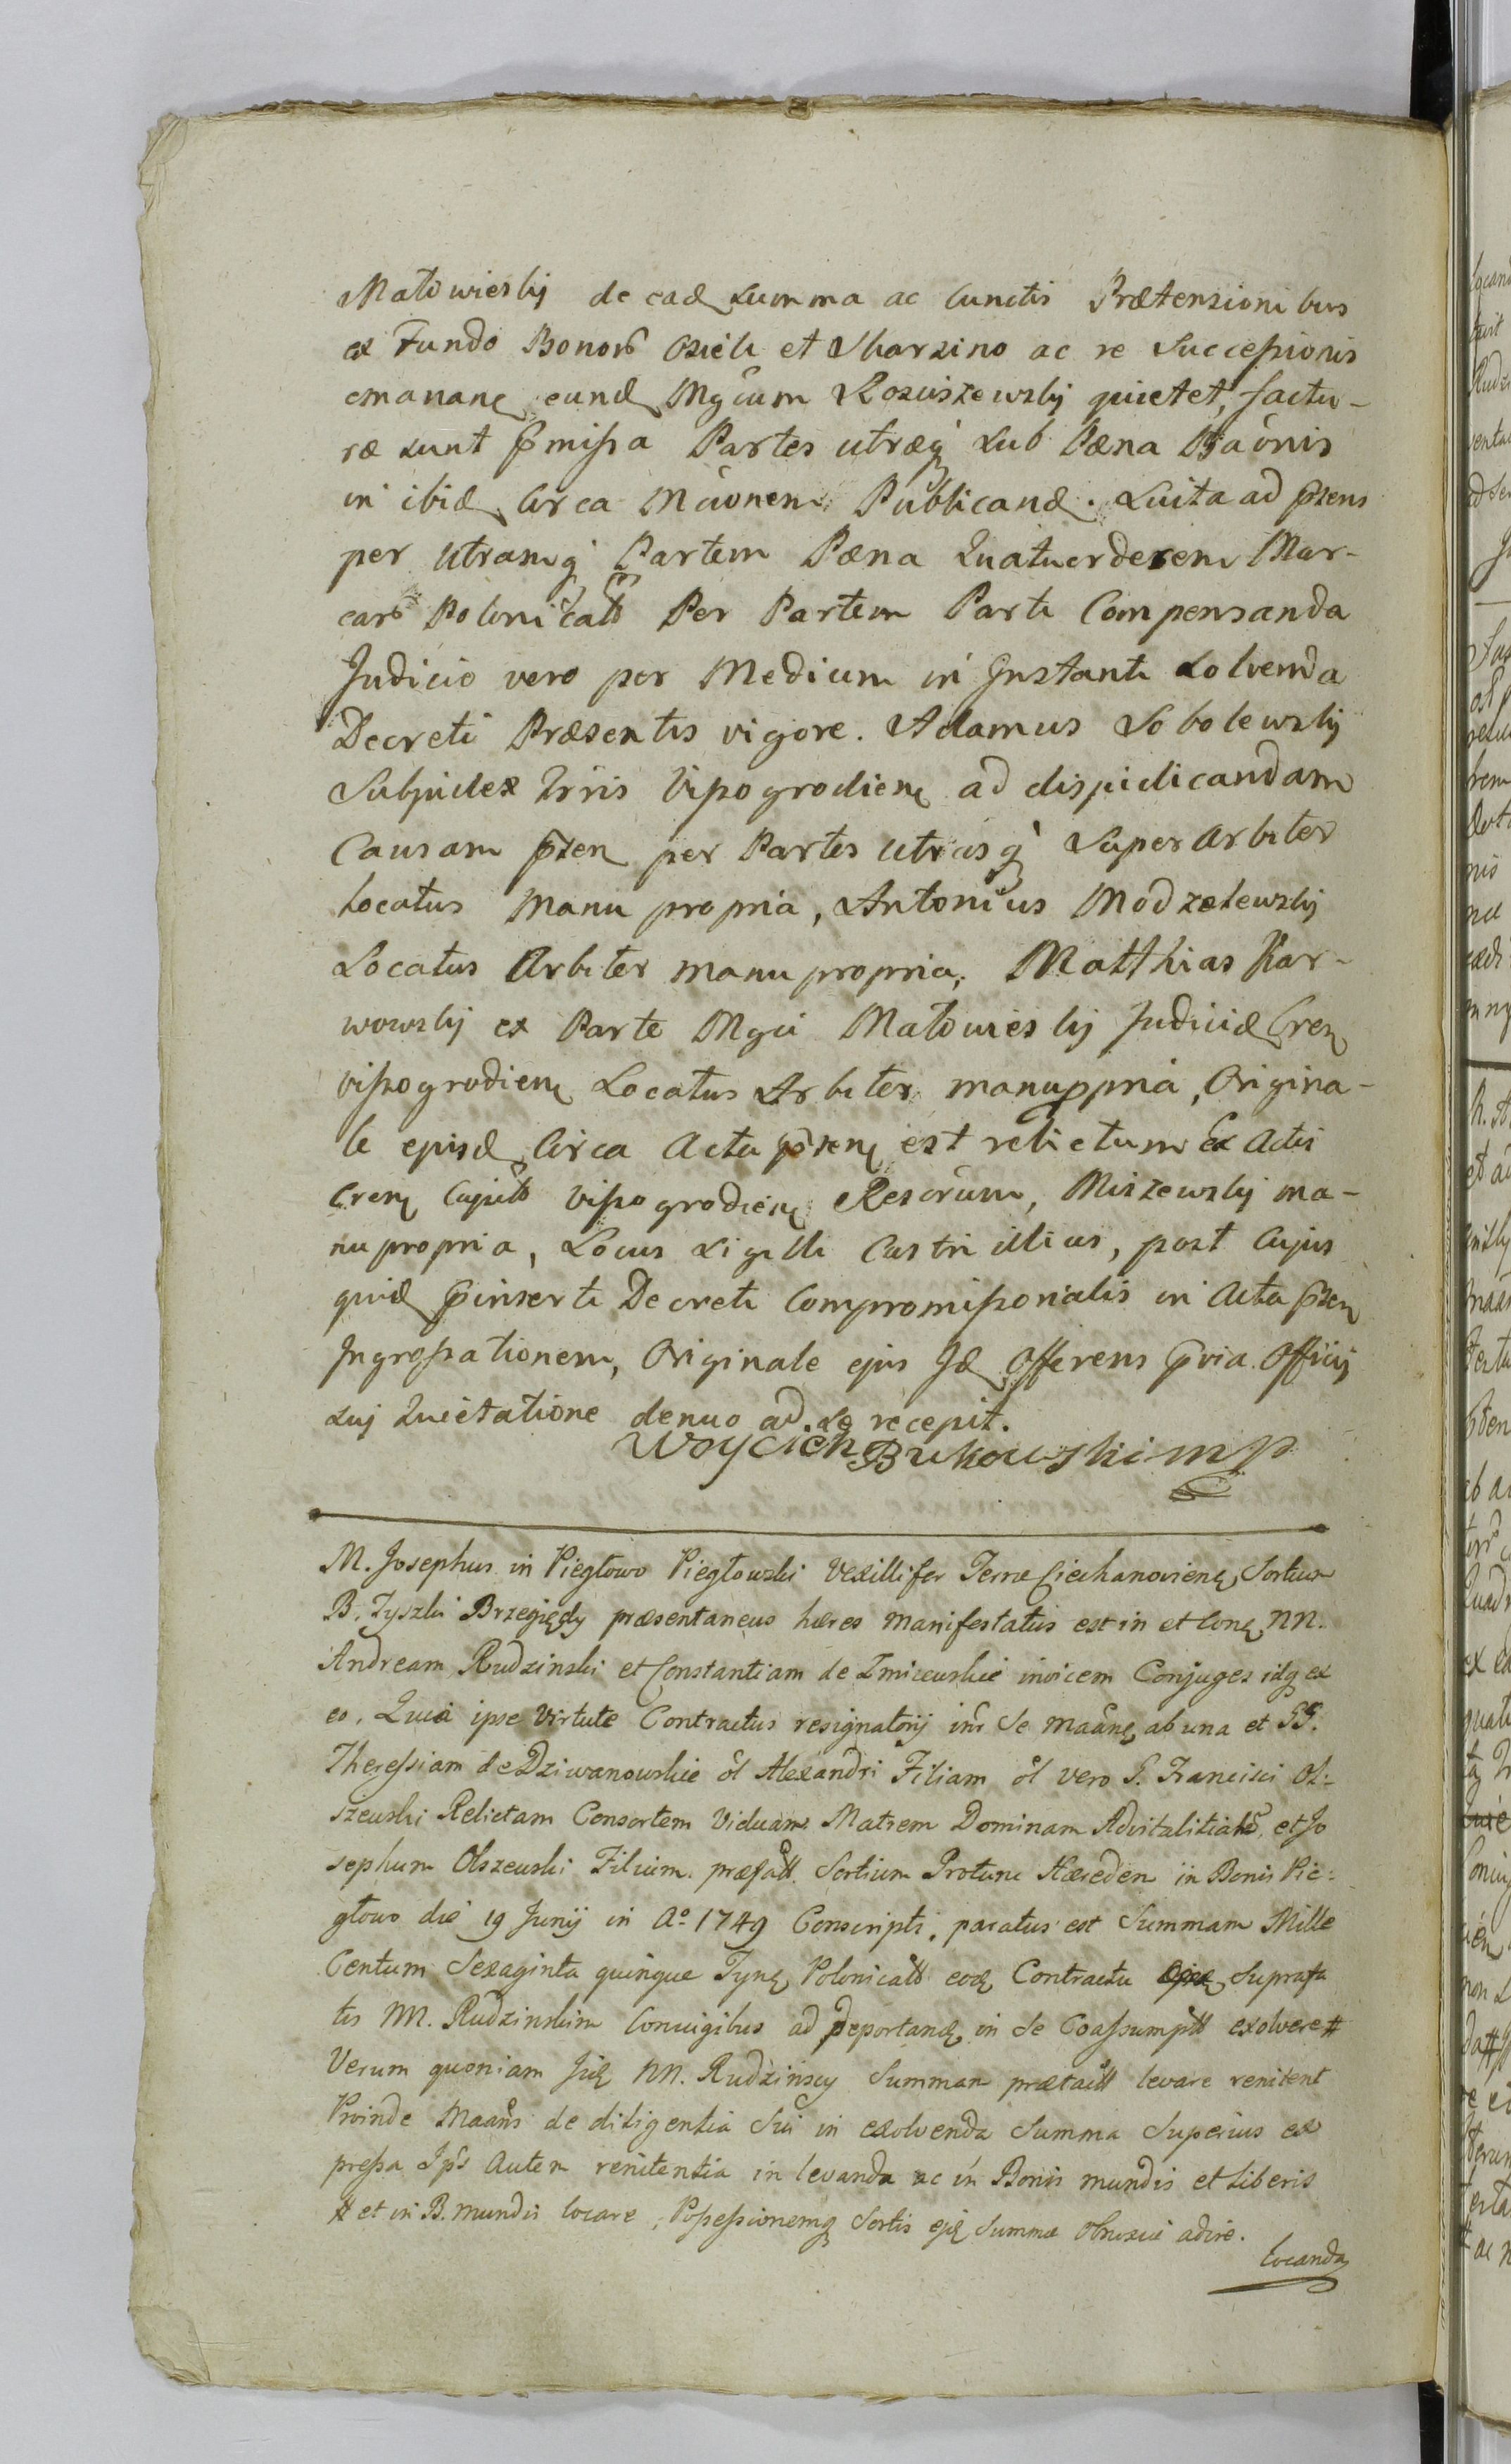 Małowieskij de ead summa ac cunctis Prætensionibus
ex Fundo Bonor Osiek et Skarzino ac re Successionis
emanan eund Mgcum Kosciszewskij quietet, factu-
ræ sunt pmissa Partes utræq sub Pæna Baonis
in ibid circa Maonem Publicand. Luita ad pzens
per utramq Partem Pæna Quatuordecem Mar-
car Polonicall Per Partem Parti Compensanda
Judicio vero per Medium in Instanti solvenda
Decreti Præsentis vigore. Adamus Sobolewskij
Subjudex Trris Vissogrodien ad disjudicandam
Causam pzen per Partes utrasq Super Arbiter
Locatus Manu propria, Antonius Modzelewskij
Locatus Arbiter manu propria, Matthias Kar-
wowskij ex Parte Mgci Małowieskij Judicis Cren
vissogrodien Locatus Arbiter manuppria, Origina-
le ejusd circa Acta pzen est relictum Ex Actis
Cren Capit vissogrodien Rescrum, Miszewskij ma-
nu propria, Locus Sigilli Castri illius, post cujus
quid pinserti Decreti Compromissorialis in Acta pzen
Ingrossationem, Originale ejus Id Offerens pvia Officij
sui Quietatione denuo ad se recepit.
Woyciech Bukowski mp
M. Josephus in Piegłowo Piegłowski Vexillifer Terræ Ciechanovien, Sortium
B. Tyszki Brzegiędy præsentaneus hæres manifestatus est in et Con NN.
Andream Rudzinski et Constantiam de Zmiewskie invicem Conjuges idq ex
eo, Quia ipse Virtute Contractus resignatorij inr Se maan ab una et GG.
Theressiam de Dziwanowskie ol Alexandri Filiam ol vero G. Francisci Ol:
szewski Relictam Consortem Viduam Matrem Dominam Advitalitial, et Jo
sephum Olszewski Filium præfatt Sortium Protunc Hæredem in Bonis Pie:
głowo die 19 Junij in Ao 1749 Conscripti, paratus est Summam Mille
Centum Sexaginta quinque Tyn Polonicall eod Contractu suprafa
tis NN. Rudzinskim Conjugibus ad deportand in se Coassumptt exolvere #
Verum quoniam Jid NN. Rudzinscy Summam prætactt levare renitent
Proinde Maans de diligentia sui in exolvenda Summa superius ex
pressa Ips Autem renitentia in levanda ac in Bonis mundis et Liberis
# et in B. mundis locare, Possessionemq Sortis ejd Summæ Obnoxiæ adire.
locanda